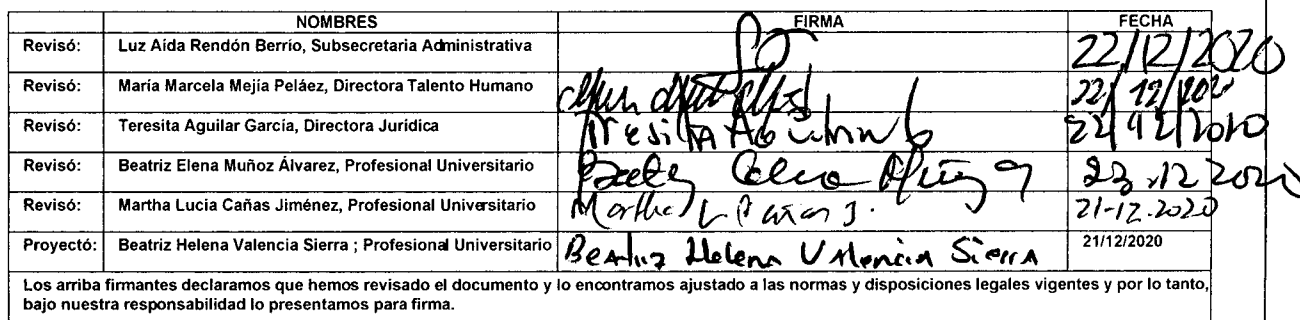 NOMBRES FIRMA FECHA
Revisó: Luz Aída Rendón Berrío, Subsecretaria Administrativa 22/12/2020
Revisó: María Marcela Mejía Peláez, Directora Talento Humano 22/12/2020
Revisó: Teresita Aguilar García, Directora Jurídica Teresita Aguilar G 22/12/2020
Revisó: Beatriz Elena Muñoz Álvarez, Profesional Universitario Elena Muñoz 23.12.2020
Revisó: Martha Lucia Cañas Jiménez, Profesional Universitario Martha L Cañas J. 21-12.2020
Proyectó: Beatriz Helena Valencia Sierra ; Profesional Universitario Beatriz Helena Valencia Sierra 21/12/2020
Los arriba firmantes declaramos que hemos revisado el documento y lo encontramos ajustado a las normas y disposiciones legales vigentes y por lo tanto,
bajo nuestra responsabilidad lo presentamos para firma.